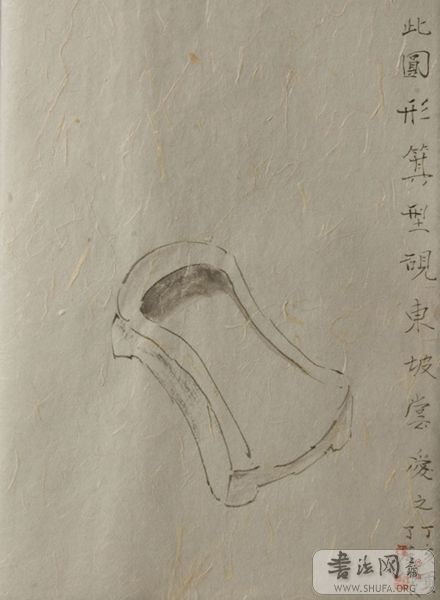 此圓形箕型硯東坡嘗愛之
書法网
WWW.SHUFA.ORG